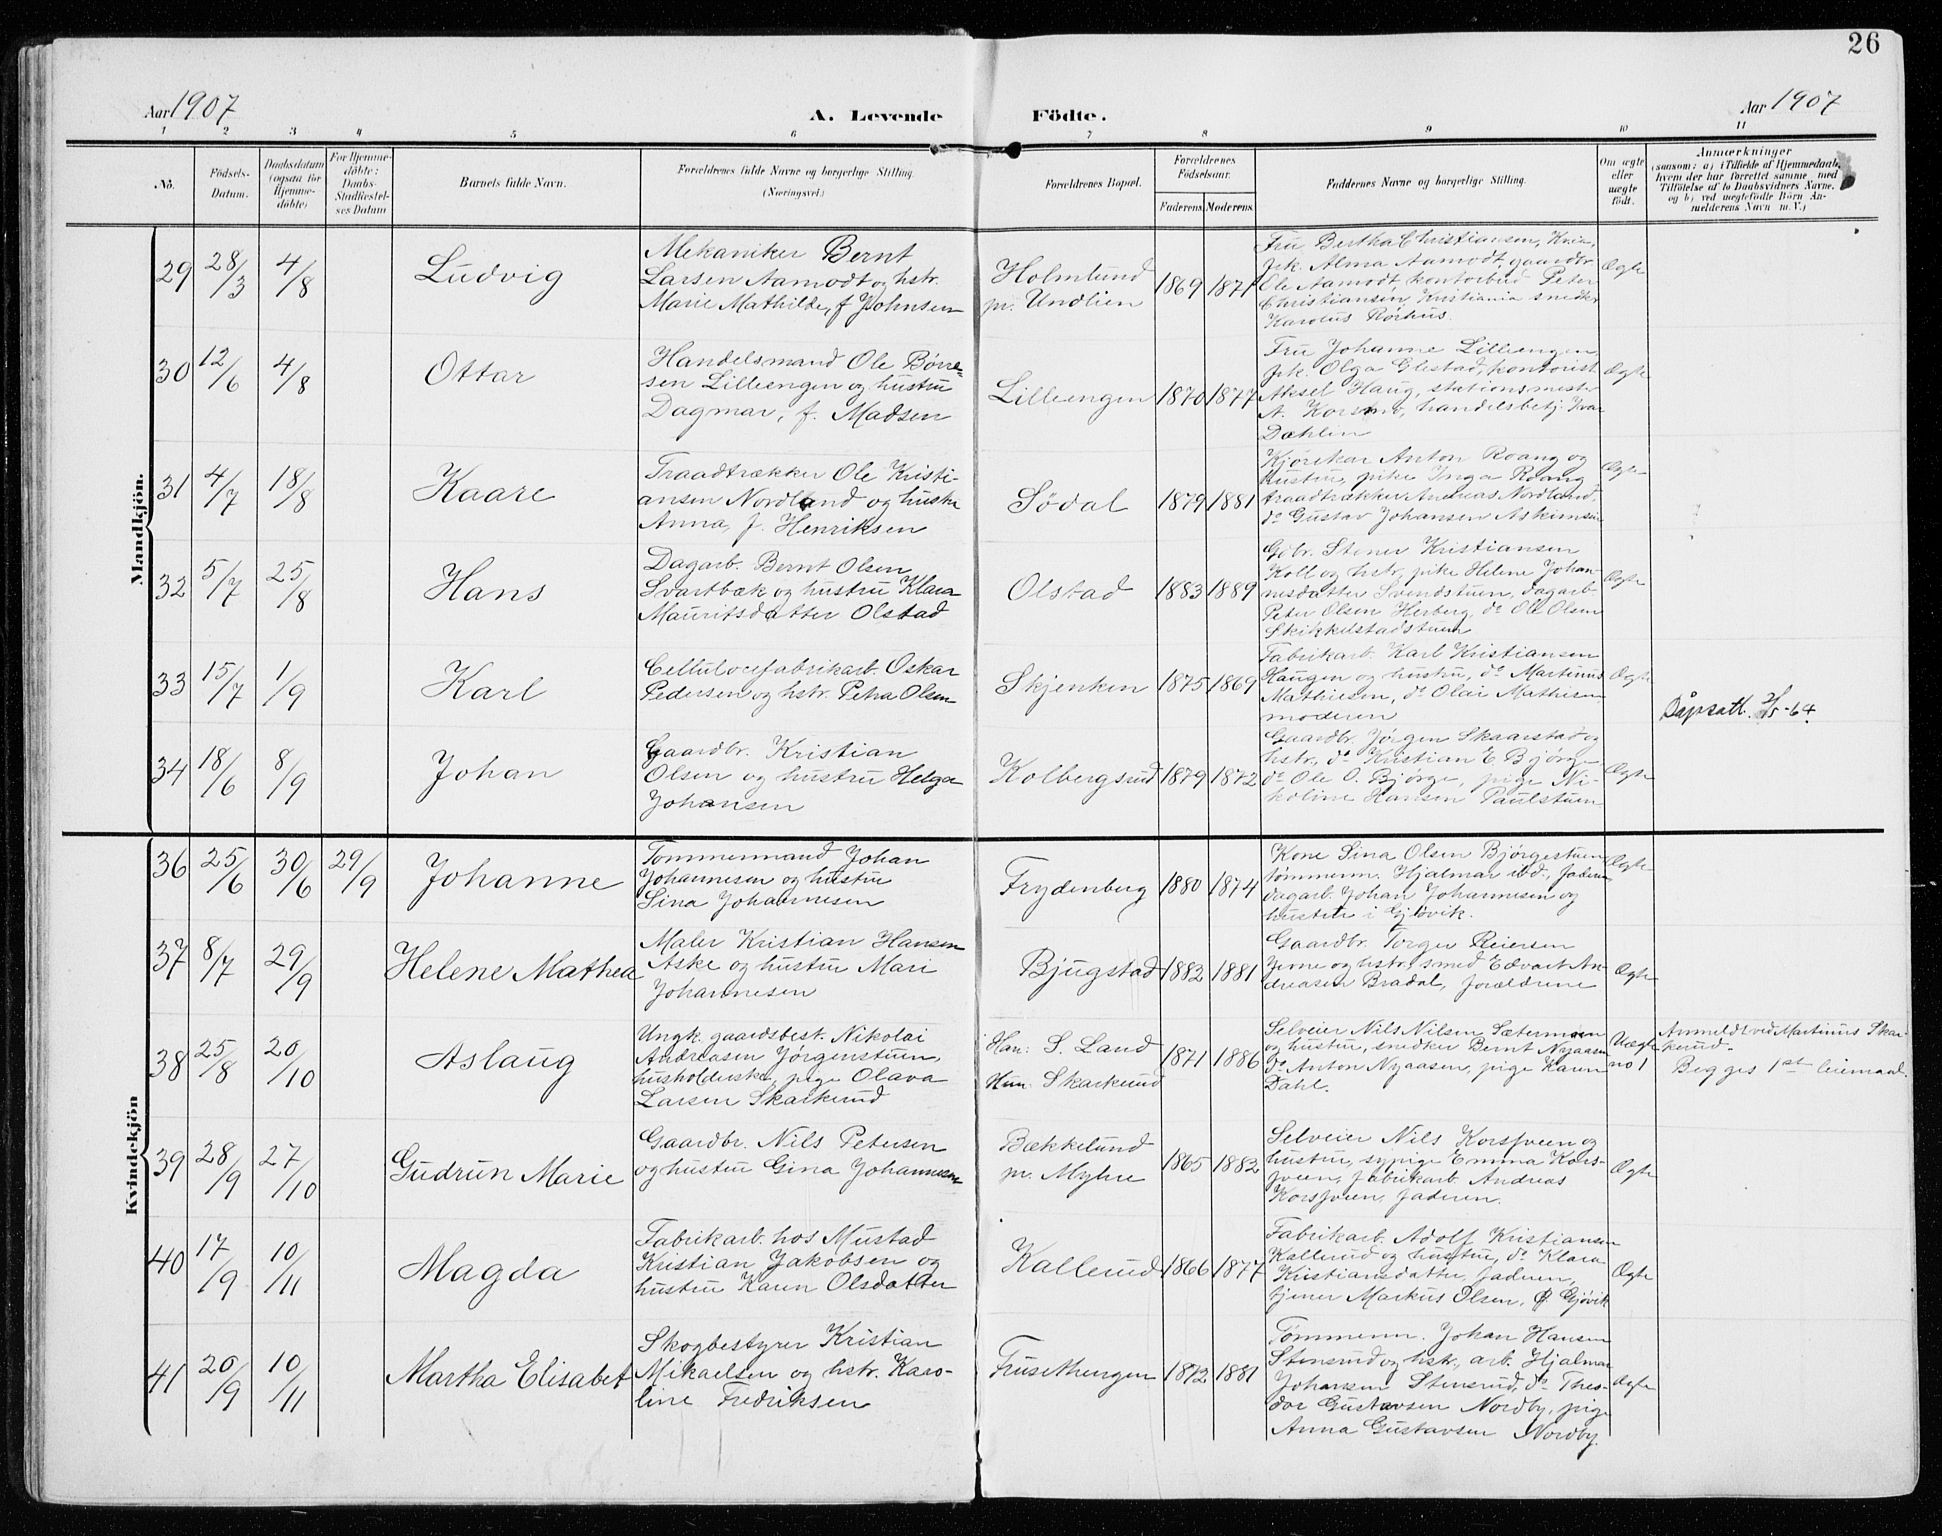 26
Aar 1907
A. Levende
Fødte.
Aar 1907
1 2 3 4 5 6 7 8 9 10 11
No.
Fødsels-
Datum.
Daabsdatum
(ogsaa for
Hjemme-
døbte)
For Hjemme-
døbte:
Daabs-
Stadfæstel-
ses Datum
Barnets fulde Navn.
Forældrenes fulde Navne og borgerlige Stilling.
(Næringsvei.)
Forældrenes Bopæl.
Forældrenes
Fødselsaar.
Faderens Moderens
Faddernes Navne og borgerlige Stilling.
Om ægte
eller
uægte
født.
Anmærkninger
(saasom: a) i Tilfælde af Hjemmedaab,
hvem der har forrettet samme med
Tilføielse af to Daabsvidners Navne,
og b) ved uægtefødte Børn An-
melderens Navn m. V.)
Mandkjön.
29 28/3 4/8 Ludvig
Mekaniker Bernt
Larsen Aamodt og hstr.
Marie Mathilde, f. Johnsen
Holmlund
pr. Undlien
1869 1871
Fru Bertha Christiansen, Kria,
pk. Alma Aamodt, gaardbr.
Ole Aamodt, kontorbud Peter
Christiansen, Kristiania snedker
Karolus Rørhus.
Ægte
30 12/6 4/8 Ottar
Handelsmand Ole Børre-
sen Lilleengen og hustru
Dagmar, f. Madsen
Lilleengen 1870 1877
Fru Johanne Lilleengen
pk. Olga Glestad, kontorist
Aksel Haug, stationsmestr
A. Korsmo, handelsbetj. Ivar
Dæhlin
Ægte
31 4/7 18/8 Kaare
Traadtrækker Ole Kristi-
ansen Nordland og hustr
Anna, f. Henriksen
Sødal 1879 1881
Kjørekar Anton Roang og
hustru, pike Inga Roang
traadtrækker Andreas Nordland,
do Gustav Johansen Askimsin
Ægte
32 5/7 25/8 Hans
Dagarb. Bernt Olsen
Svartbæk og hustru Klara
Mauritsdatter Olstad
Olstad 1883 1889
Gdbr. Stener Kristiansen
Koll og hstr, pike Helene Johan-
nesdatter Svendstuen, dagarb.
Peter Olsen Herberg, do Ole Olsen
Skikkelstadstuen
Ægte
33 15/7 1/9 Karl
Cellulocefabrikarb. Oskar
Pedersen og hstr. Petra Olsen
Skjenken 1875 1869
Fabrikarb. Karl Kristiansen
Haugen og hustru, do Martinus
Mathiesen, do Olai Mathisen
moderen
Ægte
Dåpsatt. 2/5-64
34 18/6 8/9 Johan
Gaardbr. Kristian
Olsen og hustru Helga
Johansen
Kolbergsrud 1879 1872
Gaardbr. Jørgen Skaarstad og
hstr., do Kristian E. Bjørge,
do Ole O. Bjørge, pige Ni-
koline Hansen Paulstuen
Ægte
Kvindekjön
36 25/6 30/6 29/9 Johanne
Tømmermand Johan
Johannesen og hustru
Sina Johannesen
Frydenberg 1880 1874
Kone Sina Olsen Bjørgestuen
tømmerm. Hjalmar ibd., faderen
dagarb. Johan Johannesen og
hustru i Gjøvik.
Ægte
37 8/7 29/9 Helene Mathea
Maler Kristian Hansen
Aske og hustru Mari
Johannesen
Bjugstad 1882 1881
Gaardbr. Torger Reiersen
Jerne og hstr, smed Edvart An-
dreasen Bradal, forældrene
Ægte
38 25/8 20/10 Aslaug
Ungk. gaardsbest. Nikolai
Andreasen Jørgenstuen,
husholderske, pige Olava
Larsen Skarkerud
Han: S. Land
Hun Skarkerud
1871 1886
Selveier Nils Nilsen Sætermoen
og hustru, snedker Bernt Nyaasen
do Anton Nyaasen, pige Karen
Dahl.
Uægte
no 1
Anmeldt ved Martinus Skar-
kerud.
Begges 1st leiermaal.
39 28/9 27/10 Gudrun Marie
Gaardbr. Nils Petersen
og hustru Gina Johannesen
Bækkelund
pr. Myhre
1865 1882
Selveier Nils Korsfveen og
hustru, sypige Emma Kors-
fveen, fabrikarb. Andreas
Korsfveen, faderen.
Ægte
40 17/9 10/11 Magda
Fabrikarb. hos Mustad
Kristian Jakobsen og
hustru Karen Olsdatter
Kallerud 1866 1877
Fabrikarb. Adolf Kristiansen
Kallerud og hustru, do Klara
Kristiansdatter, faderen,
tjener Markus Olsen, Gjøvik
Ægte
41 20/9 10/11 Martha Elisabet
Skogbestyrer Kristian
Mikaelsen og hstr. Karo-
line Fredriksen
Frusethengen 1872 1881
Tømmerm. Johan Hansen
Stensrud og hstr., arb. Hjalmar
Johansen Stensrud, do Theo-
dor Gustavsen Nordby, pige
Anna Gustavsen Nordby.
Ægte